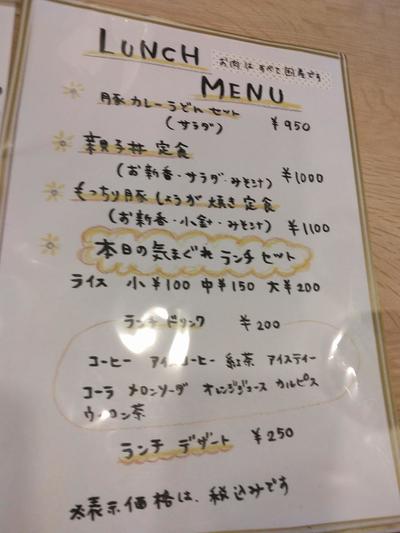 LUNCH お肉はすべて国産です
MENU
豚カレーうどんセット
(サラダ) ¥950
親子丼定食
(お新香・サラダ・みそ汁) ¥1000
もっちり豚しょうが焼き定食
(お新香・小鉢・みそ汁) ¥1100
本日の気まぐれランチセット
ライス 小¥100 中¥150 大¥200
ランチドリンク ¥200
コーヒー アイスコーヒー 紅茶 アイスティー
コーラ メロンソーダ オレンジジュース カルピス
ウーロン茶
ランチデザート ¥250
※表示価格は、税込みです